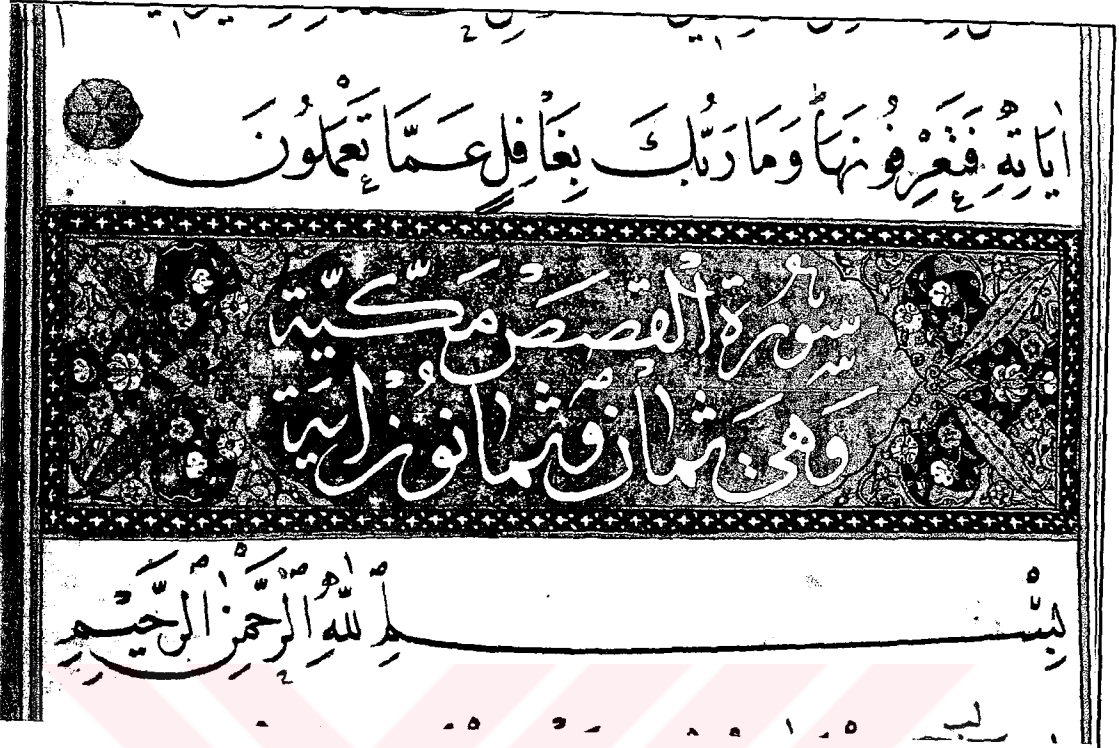 اٰيَاتِهٖ فَتَعْرِفُونَهَا وَمَا رَبُّكَ بِغَافِلٍ عَمَّا تَعْمَلُونَ
سُورَةُ الْقَصَصِ مَكِّيَّة
وَهِيَ ثَمَانٌ وَثَمَانُونَ اٰيَة
بِسْمِ اللّٰهِ الرَّحْمٰنِ الرَّحِيمِ